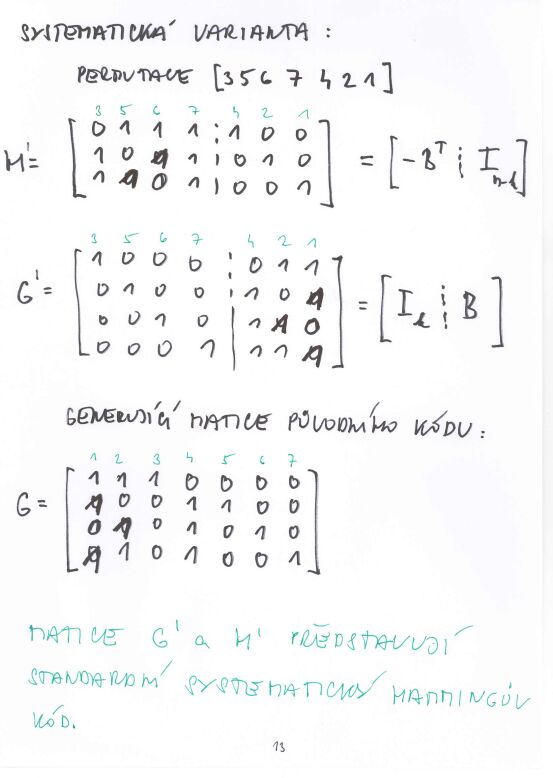 SYSTEMATICKÁ VARIANTA :
PERMUTACE [3 5 6 7 4 2 1]
3 5 6 7 4 2 1
0 1 1 1 ⋮ 1 0 0
H' = 1 0 1 1 ⋮ 0 1 0 = [-Bᵀ ⋮ I n-k]
1 1 0 1 ⋮ 0 0 1
3 5 6 7 4 2 1
1 0 0 0 ⋮ 0 1 1
G' = 0 1 0 0 ⋮ 1 0 1 = [I k ⋮ B]
0 0 1 0 | 1 1 0
0 0 0 1 | 1 1 1
GENERUJÍCÍ MATICE PŮVODNÍHO KÓDU :
1 2 3 4 5 6 7
1 1 1 0 0 0 0
G = 1 0 0 1 1 0 0
0 1 0 1 0 1 0
1 1 0 1 0 0 1
MATICE G' a H' PŘEDSTAVUJÍ
STANDARDNÍ SYSTEMATICKÝ HAMMINGŮV
KÓD.
13